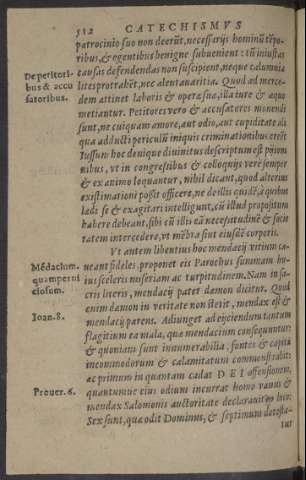 512 CATECHISMVS
patrocinio suo non deerũt, necessarijs hominũ tẽpo-
ribus, & egentibus benigne subuenient: tũ iniustas
De petitori-
bus & accu
satoribus.
causas defendendas non suscipient, neque calumnia
lites protrahẽt, nec alent auaritia. Quod ad merce-
dem attinet laboris & operæ suæ, illa iure & æquo
metiantur. Petitores vero & accusatores monendi
sunt, ne cuiquam amore, aut odio, aut cupiditate ali
qua adducti periculũ iniquis criminationibus creẽt
Iussum hoc denique diuinitus descriptum est pijs om
nibus, vt in congressibus & colloquijs vere semper
& ex animo loquantur, nihil dicant, quod alterius
existimationi possit officere, ne de illis quidẽ, à quibus
læsi se & exagitari intelligunt, cũ illud propositum
habere debeant, sibi cũ illis eã necessitudinẽ & socie
tatem intercedere, vt mẽbra sint eiusdẽ corporis.
Vt autem libentius hoc mendacij vitium ca-
Mẽdacium.
quam perni
ciosum.
ueant fideles, proponet eis Parochus summam hu-
ius sceleris miseriam ac turpitudinem. Nam in sa-
cris literis, mendacij pater dæmon dicitur. Quod
Ioan. 8.
enim dæmon in veritate non stetit, mendax est &
mendacij parens. Adiunget ad eijciendum tantum
flagitium ea mala, quæ mendacium consequuntur:
& quoniam sunt innumerabilia, fontes & capita
incommodorum & calamitatum commonstrabit:
ac primum in quantam cadat DEI offensionem,
Prouer. 6.
quantumue eius odium incurrat homo vanus &
mendax Salomonis auctoritate declarauit eo loco:
Sex sunt, quæ odit Dominus, & septimum detesta-
tur